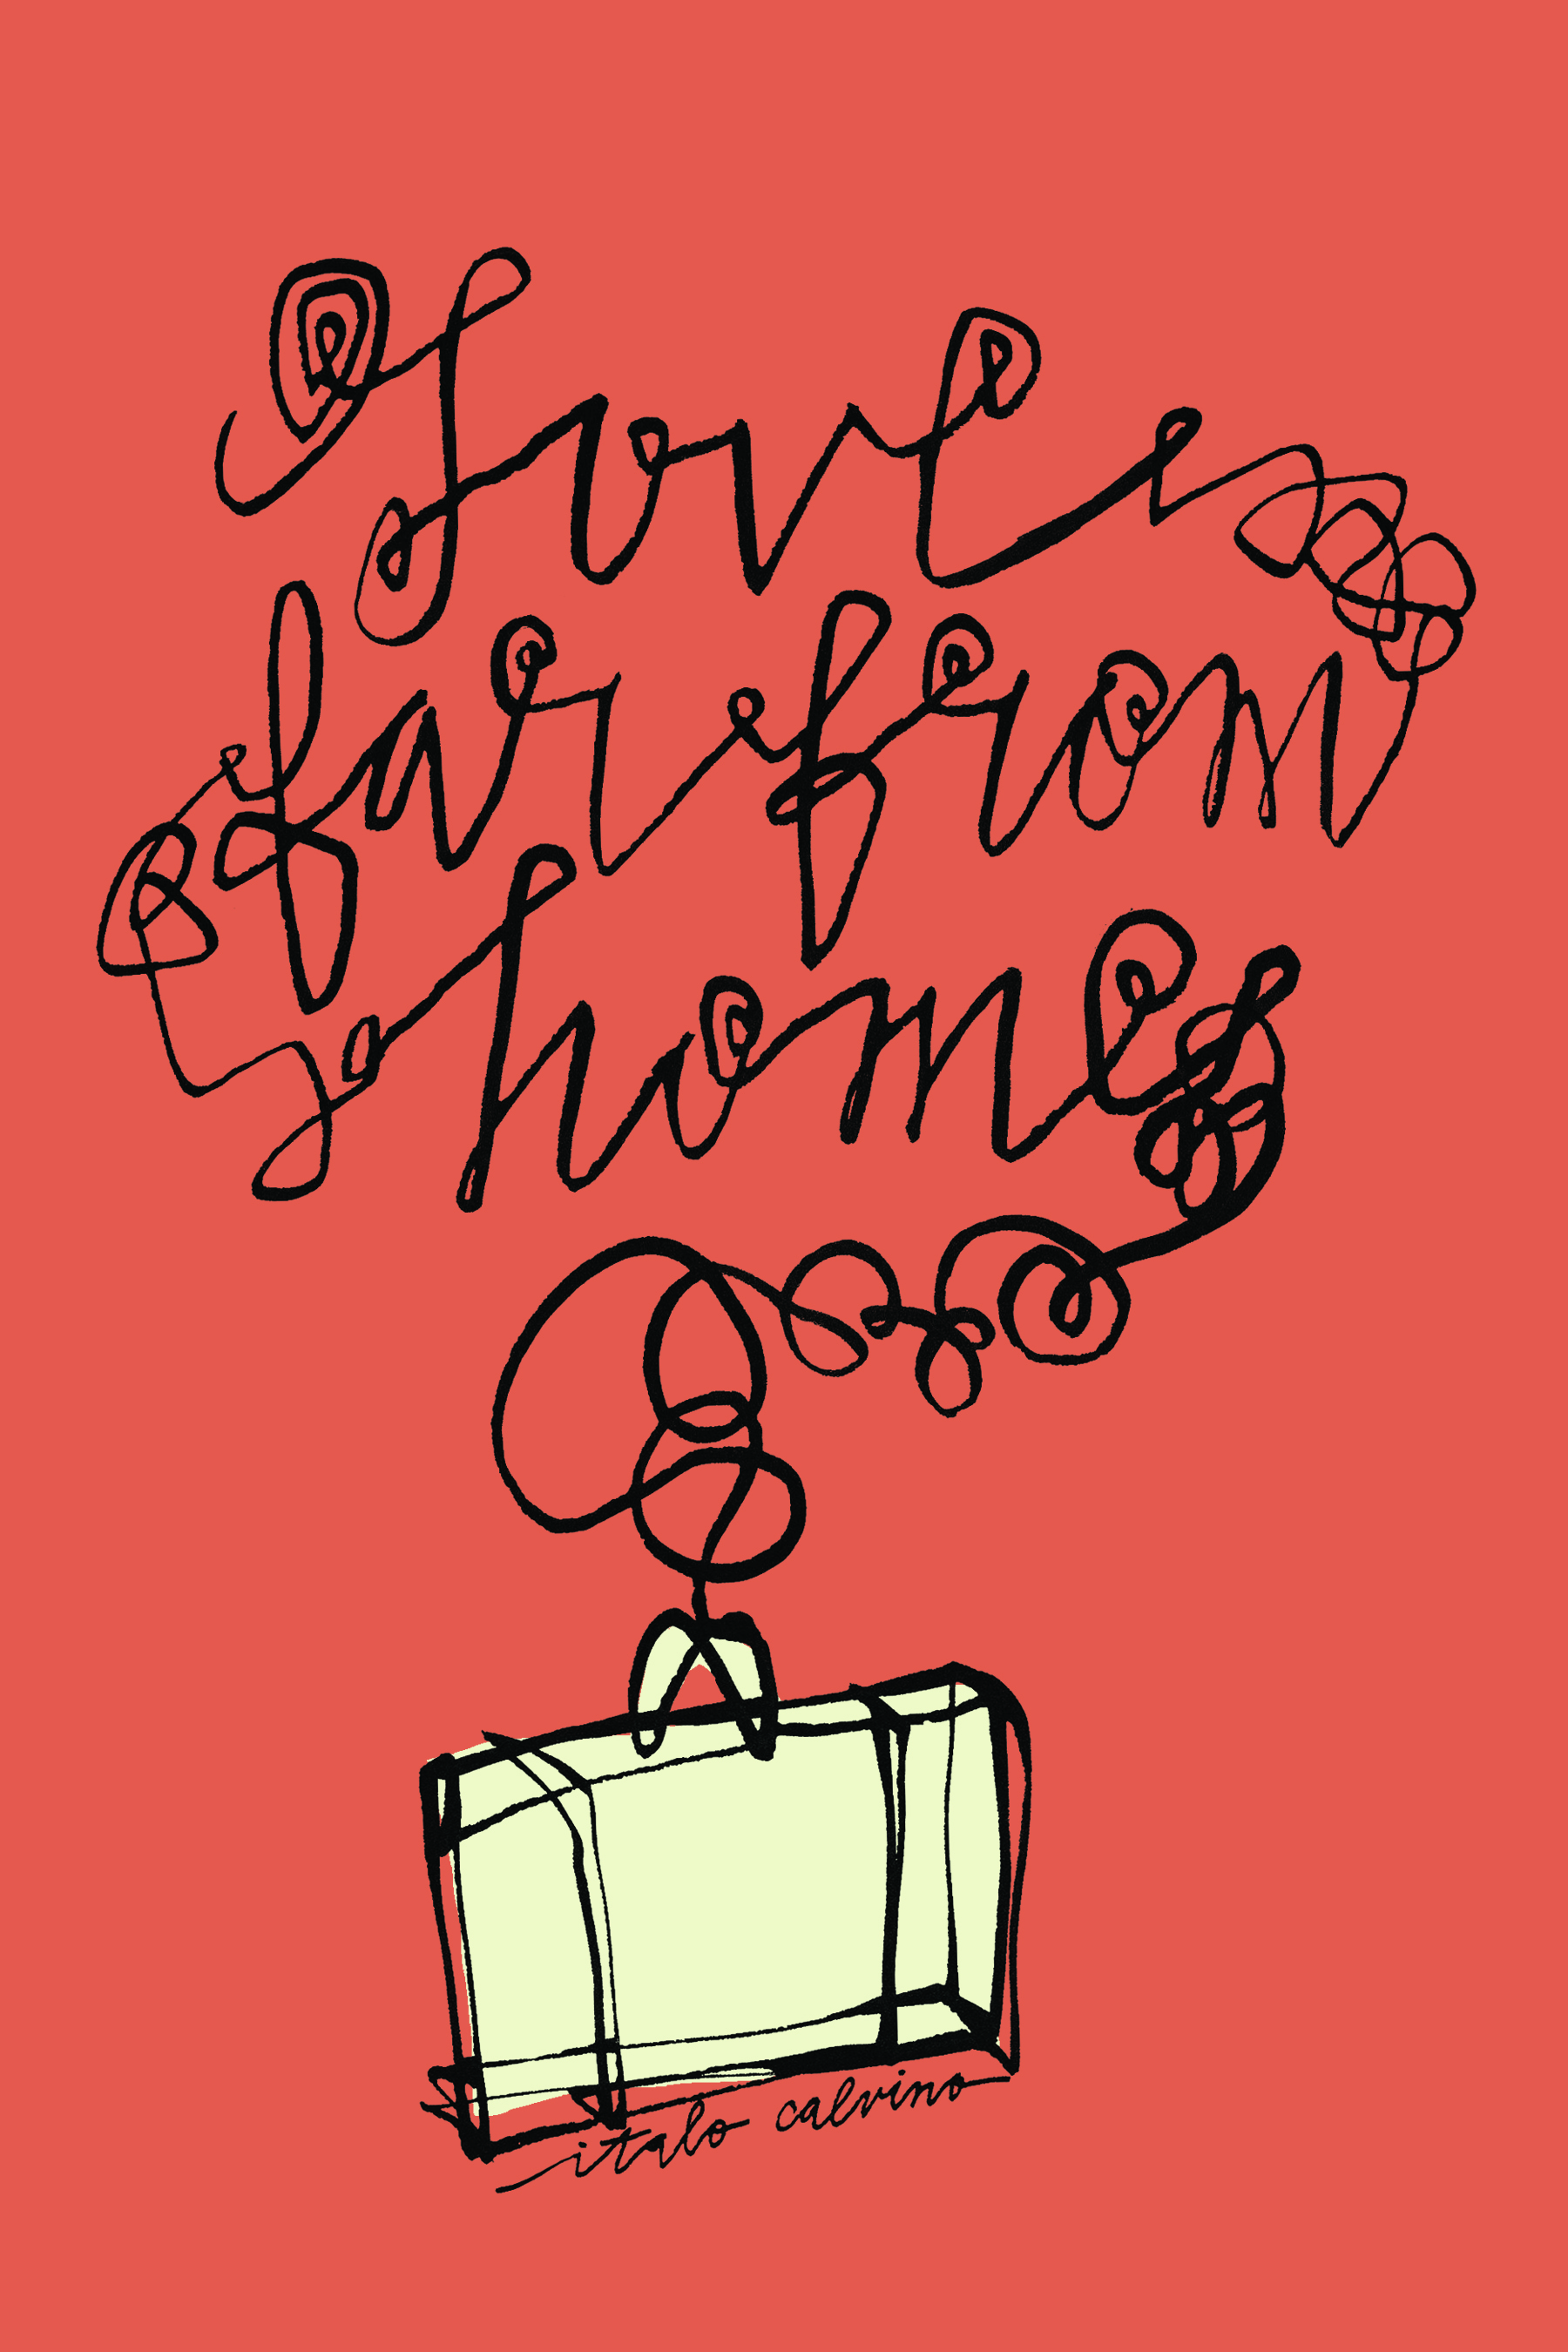 love
far from
home
italo calvino